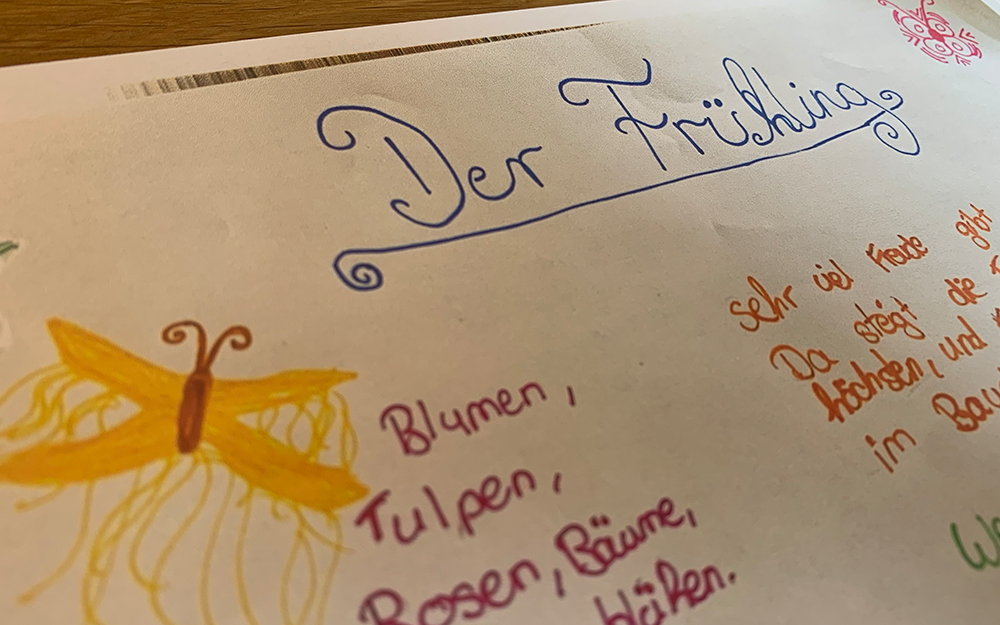 Der Frühling
Blumen,
Tulpen,
Rosen, Bäume,
blühen.
sehr viel Freude gibt
Da steigt die
höchsten, und
im